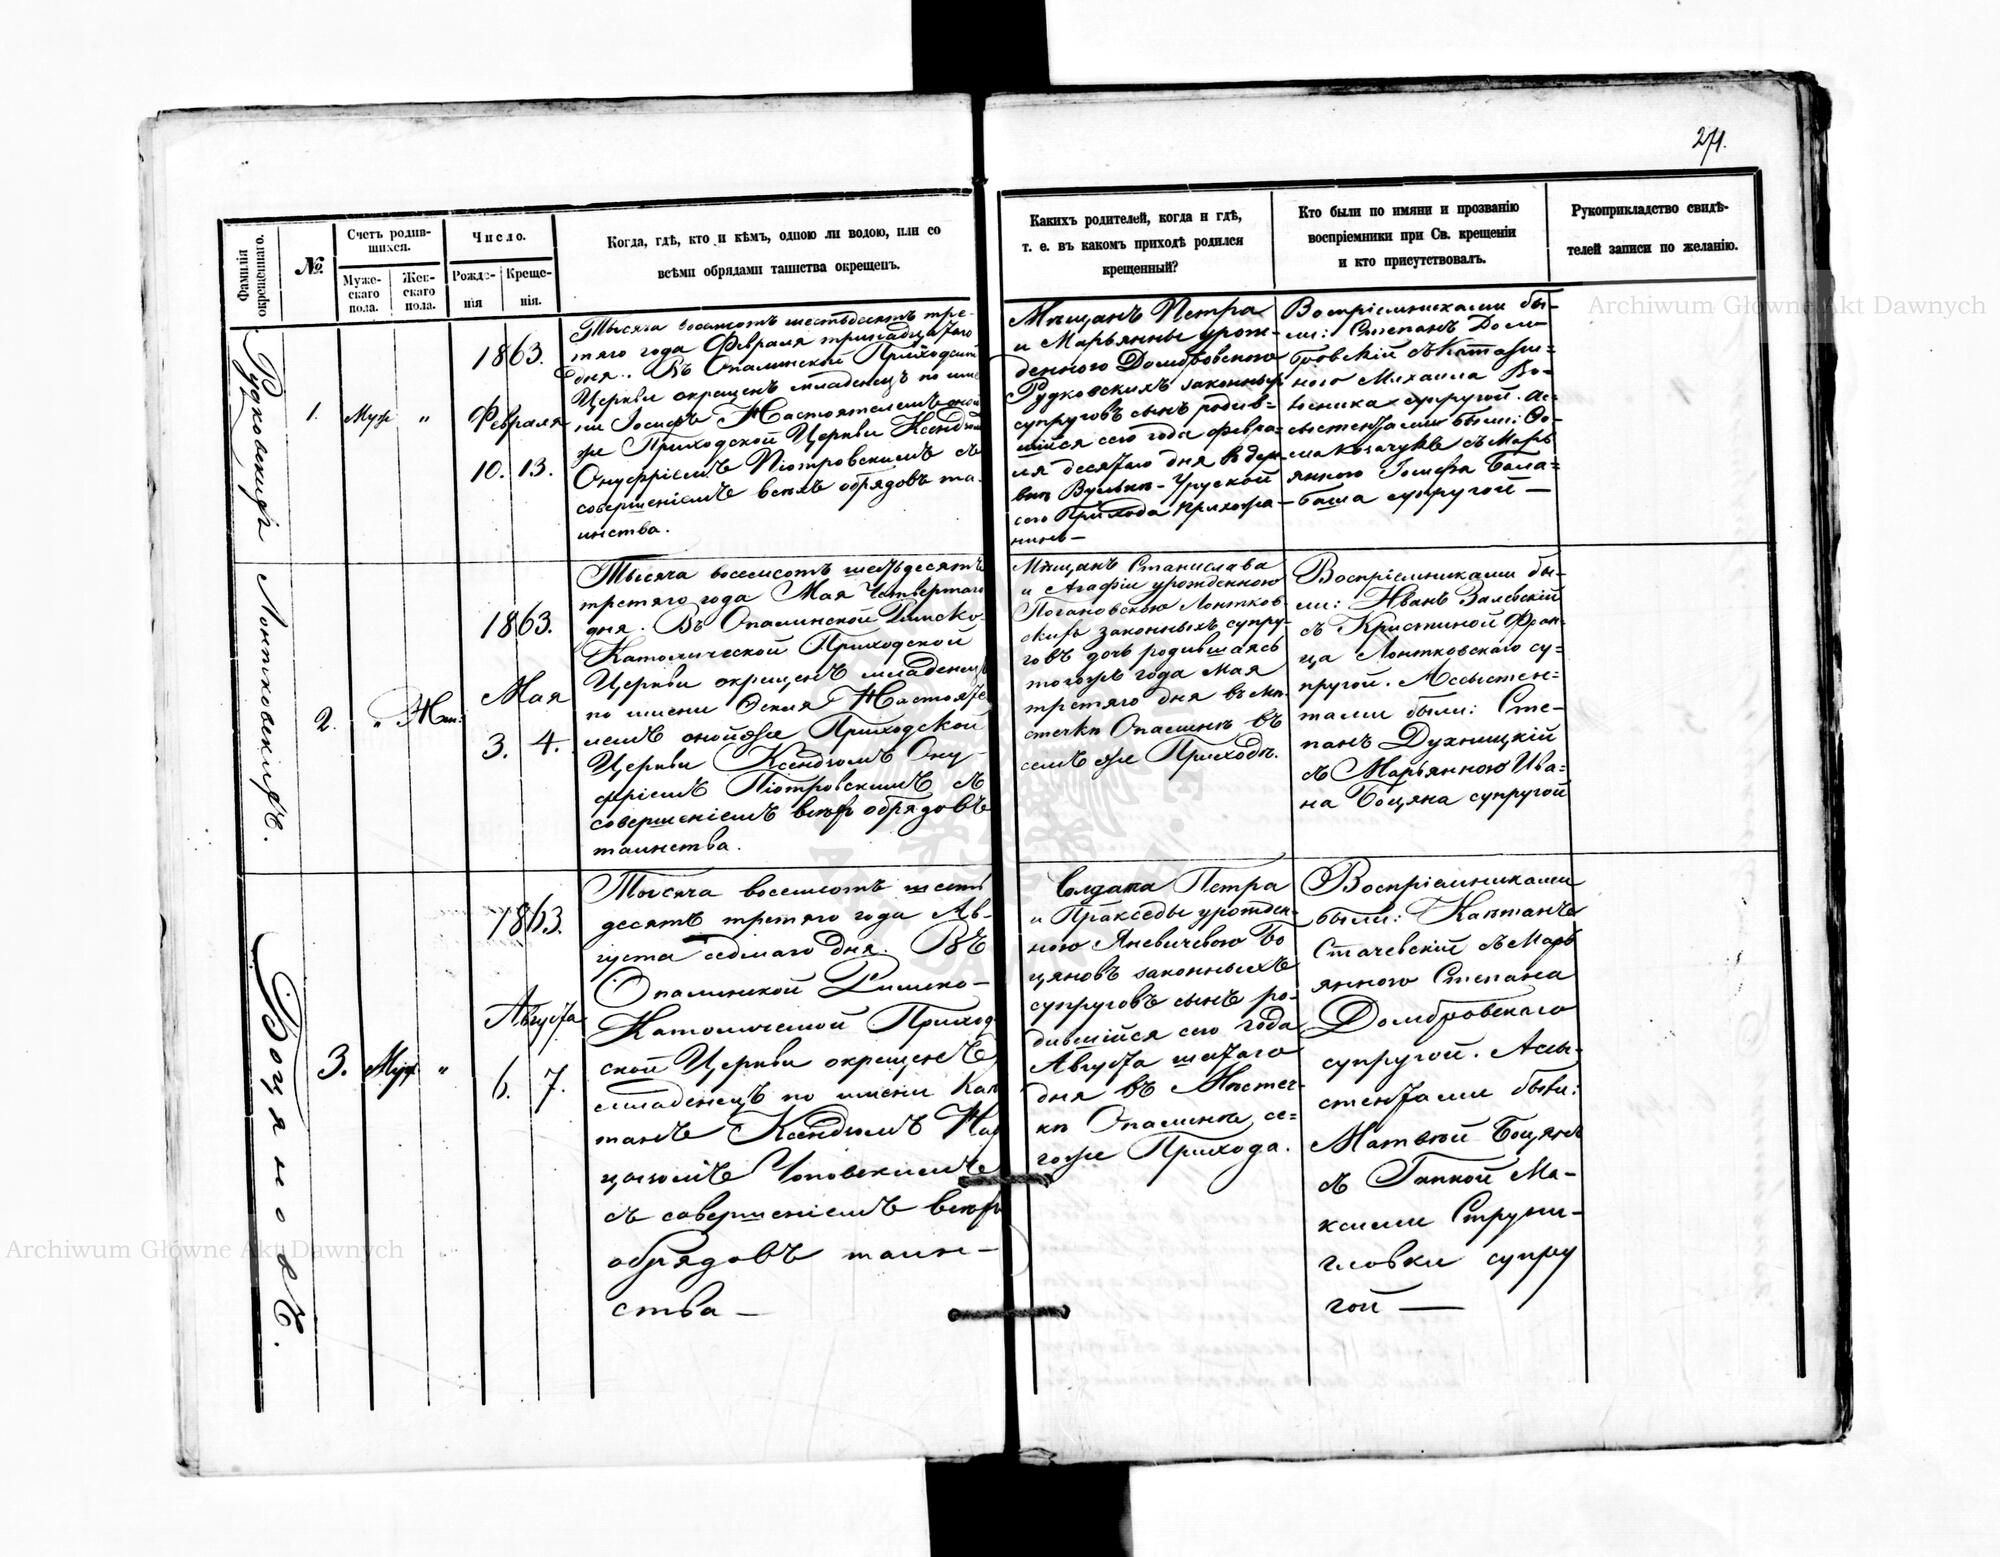 271.
Фамилія
окрещеннаго.
№
Счетъ родив-
шихся.
Муже-
скаго
пола.
Жен-
скаго
пола.
Число.
Рожде-
нія
Креще-
нія.
Когда, гдѣ, кто и кѣмъ, одною ли водою, или со
всѣми обрядами таинства окрещенъ.
Какихъ родителей, когда и гдѣ,
т. е. въ какомъ приходѣ родился
крещенный?
Кто были по имяни и прозванію
воспріемники при Св. крещеніи
и кто присутствовалъ.
Рукоприкладство свидѣ-
телей записи по желанію.
Рудковскихъ
1.
Муж
"
1863.
Февраля
10. 13.
Тысяча восемсотъ шестьдесятъ тре-
тяго года Февраля тринадцатаго
дня. Въ Опалинской Приходской
Церкви окрещенъ младенецъ по име
ни Іосифъ Настоятелемъ оной
же Приходской Церкви Ксендзомъ
Онуфріемъ Піотровскимъ съ
совершеніемъ всѣхъ обрядовъ та-
инства.
Мѣщанъ Петра
и Марьянны урож-
денного Домбровского
Рудковскихъ законныхъ
супруговъ сынъ родив-
шійся сего года Февра-
ля десятаго дня въ дерев
внѣ Вулькѣ-Угруской
сего Прихода прихожа-
нинъ—
Воспріемниками бы-
ли: Степанъ Дом-
бровскій съ Катажи-
ного Михаила Во-
супругой. Ас-
сыстентами были: Ѳо-
ма Козачукъ съ Марь
янного Іосифа Бала-
баша супругой—
Лонтковскихъ.
2.
" Жен:
1863.
Мая
3. 4.
Тысяча восемсотъ шестьдесятъ
третяго года Мая Четвертаго
дня. Въ Опалинской Римско-
Католической Приходской
Церкви окрещенъ младенецъ
по имени Настояте
лемъ онойже Приходской
Церкви Ксендзомъ Ону-
фріемъ Піотровскимъ съ
совершеніемъ всѣхъ обрядовъ
таинства.
Мѣщанъ Станислава
и Агафіи урожденною
Лонтков-
скихъ законныхъ супру-
говъ дочь родившаясь
тогожъ года Мая
третяго дня въ мѣ-
стечкѣ Опалинѣ въ
семъ же Приходѣ.
Воспріемниками бы-
ли: Иванъ Залѣскій
съ Кристиной Фран-
ца Лонтковскаго су-
пругой. Ассыстен-
тами были: Сте-
панъ Духницкій
съ Марьянною Ива-
на Боцяна супругой
Боцяновъ.
3.
Муж
"
1863.
Августа
6. 7.
Тысяча восемсотъ шесть
десятъ третяго года Ав-
густа седмаго дня. Въ
Опалинской Римско-
Католической Приход
ской Церкви окрещенъ
младенецъ по имени Каэ
танъ Ксендзомъ
съ совершеніемъ всѣхъ
обрядовъ таин-
ства—
Солдата Петра
и Пракседы урожден-
ною Яневичевою Бо
цяновъ законныхъ
супруговъ сынъ ро-
дившійся сего года
Августа шестаго
дня въ Мѣстеч-
кѣ Опалинѣ се-
гоже Прихода.
Воспріемниками
были: Каэтанъ
Стачевскій съ Марь
янного Степана
Домбровскаго
супругой. Ассы-
стентами были:
Матвѣй Боцянъ
съ Гапкой Ма-
ксима Струпи-
гловки супру
гой —
Archiwum Główne Akt Dawnych
Archiwum Główne Akt Dawnych